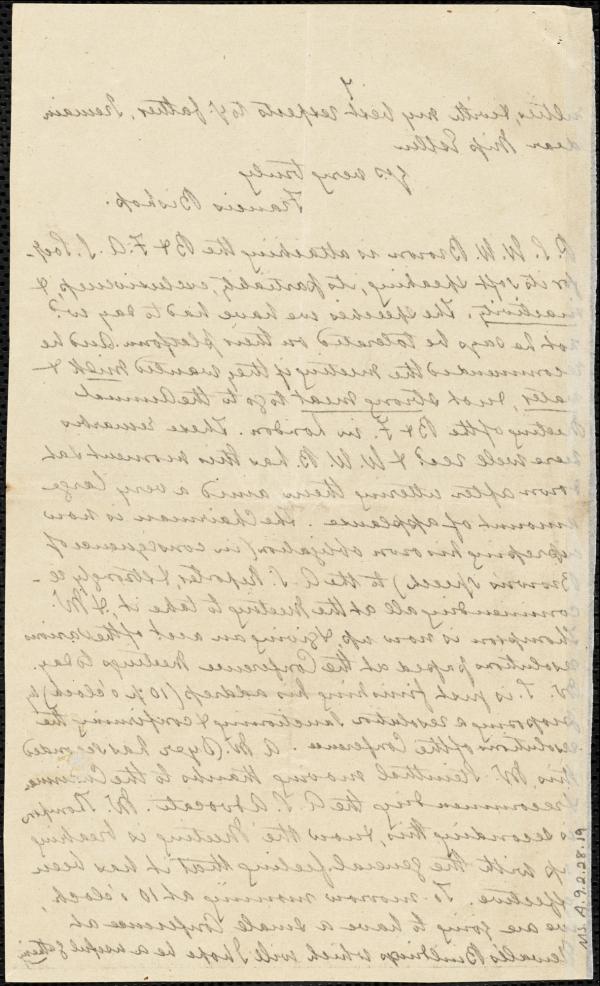 7
ulties, & with my best respects to yr. father, I remain
dear Miss Estlin
Yrs very truly
Francis Bishop.
P.S. W. W. Brown is attacking the B & F. A. S. Socy.
for its soft speaking, its partiality, exclusiveness, &
inactivity. The speeches we have had to day wd.
not he says be tolerated on their platform. And he
recommended the meeting if they wanted milk &
water, & not strong meat to go to the Annual
Meeting of the B & F. in London. These remarks
were well recd. & W. W. B has this moment sat
down after uttering them amid a very large
amount of applause. The Chairman is now
expressing his own obligation (in consequence of
Brown's speech) to the A. S. Reporter, & strongly re-
commending all at the meeting to take it. & Mr.
Thompson is now up & giving an acct of the various
resolutions passed at the Conference meetings to day.
Mr. T. is just finishing his address (10 p o'clock) by
proposing a resolution sanctioning & confirming the
resolutions of the Conference. A Mr. Dyer has seconded
this. Mr. Steinthal moving thanks to the
& recommending the A. S. Advocate. Mr. Thompson
is seconding this, & now the Meeting is breaking
up with the general feeling that it has been
effective. To morrow morning at 10 o'clock,
we are going to have a small Conference at
Newall's Buildings which will I hope be a useful
Ms. A.9.2.28.19